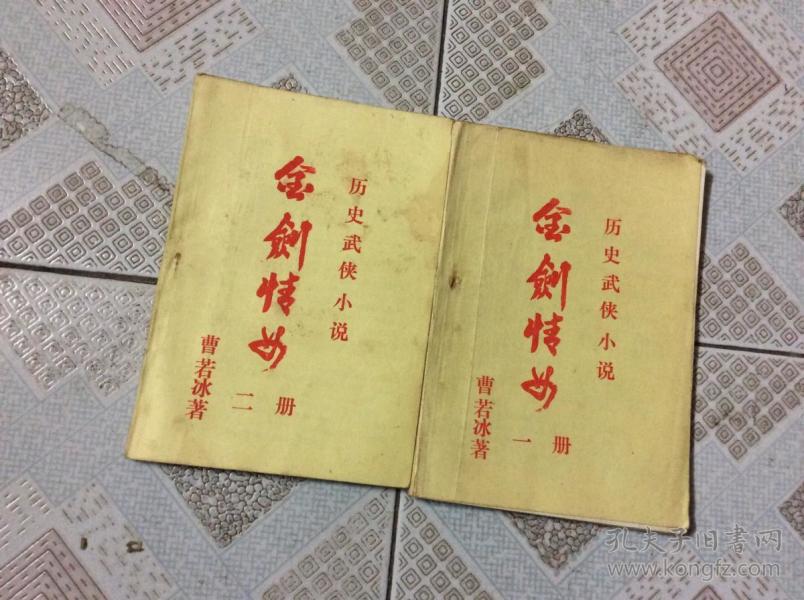 历史武侠小说
金劍情女
曹若冰著
二册
历史武侠小说
金劍情女
曹若冰著
一册
孔夫子旧书网
www.kongfz.com